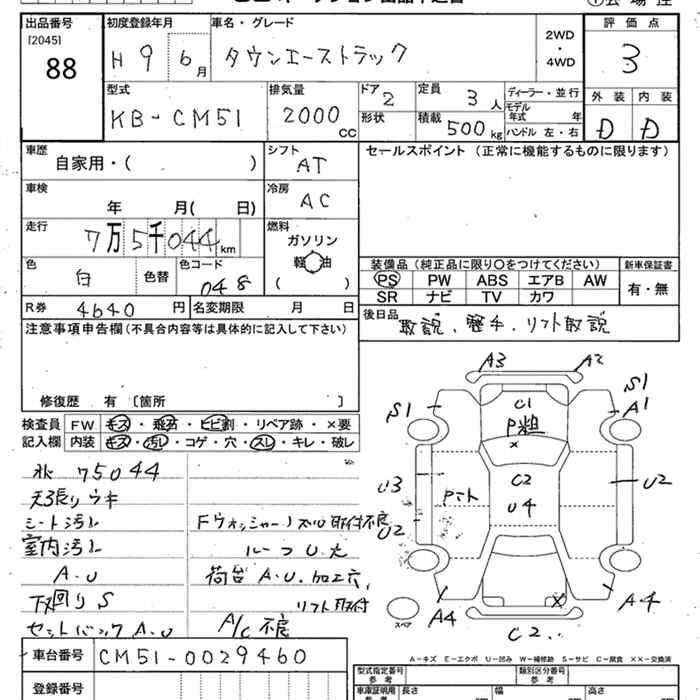 出品番号
[2045]
88
初度登録年月
H 9 6月
車名・グレード
タウンエーストラック
2WD
・
4WD
評価点
3
型式
KB-CM51
排気量
2000 CC
ドア 2
形状
定員 3人
積載 500kg
ディーラー・並行
モデル年式 年
ハンドル 左・右
外装 内装
D D
車歴
自家用・( )
シフト
AT
セールスポイント (正常に機能するものに限ります)
車検
年 月( 日)
冷房
AC
走行
7万5千044km
燃料
ガソリン
軽油
( )
色 白 色替
色コード 048
装備品 (純正品に限り○をつけてください)
PS PW ABS エアB AW
SR ナビ TV カワ
新車保証書
有・無
R券 4640円
名変期限 月 日
後日品
取説、整手、リフト取説
注意事項申告欄(不具合内容等は具体的に記入して下さい)
修復歴 有 〔箇所 〕
検査員 FW キズ・飛石・ヒビ割・リペア跡・×要
記入欄 内装 キズ・汚レ・コゲ・穴・スレ・キレ・破レ
75044
天張りウキ
シート汚レ
室内汚レ
A.U
下回りS
セットバックA.U
Fウォッシャーノズル取付不良
ルーフU大
荷台A.U.加工穴、
リフト取付
A/C不良
A3 A2
S1 S1
A1
C1
P粗
×
C2
U4
U3
Pマト
U2
U2
A4 A4
×
C2
スペア
A-キズ E-エクボ U-凹み W-補修跡 S-サビ C-腐食 ××-交換済
車台番号 CM51-0029460
登録番号
型式指定番号
参考
類別区分番号
参考
車庫証明用
長さ 幅 高さ